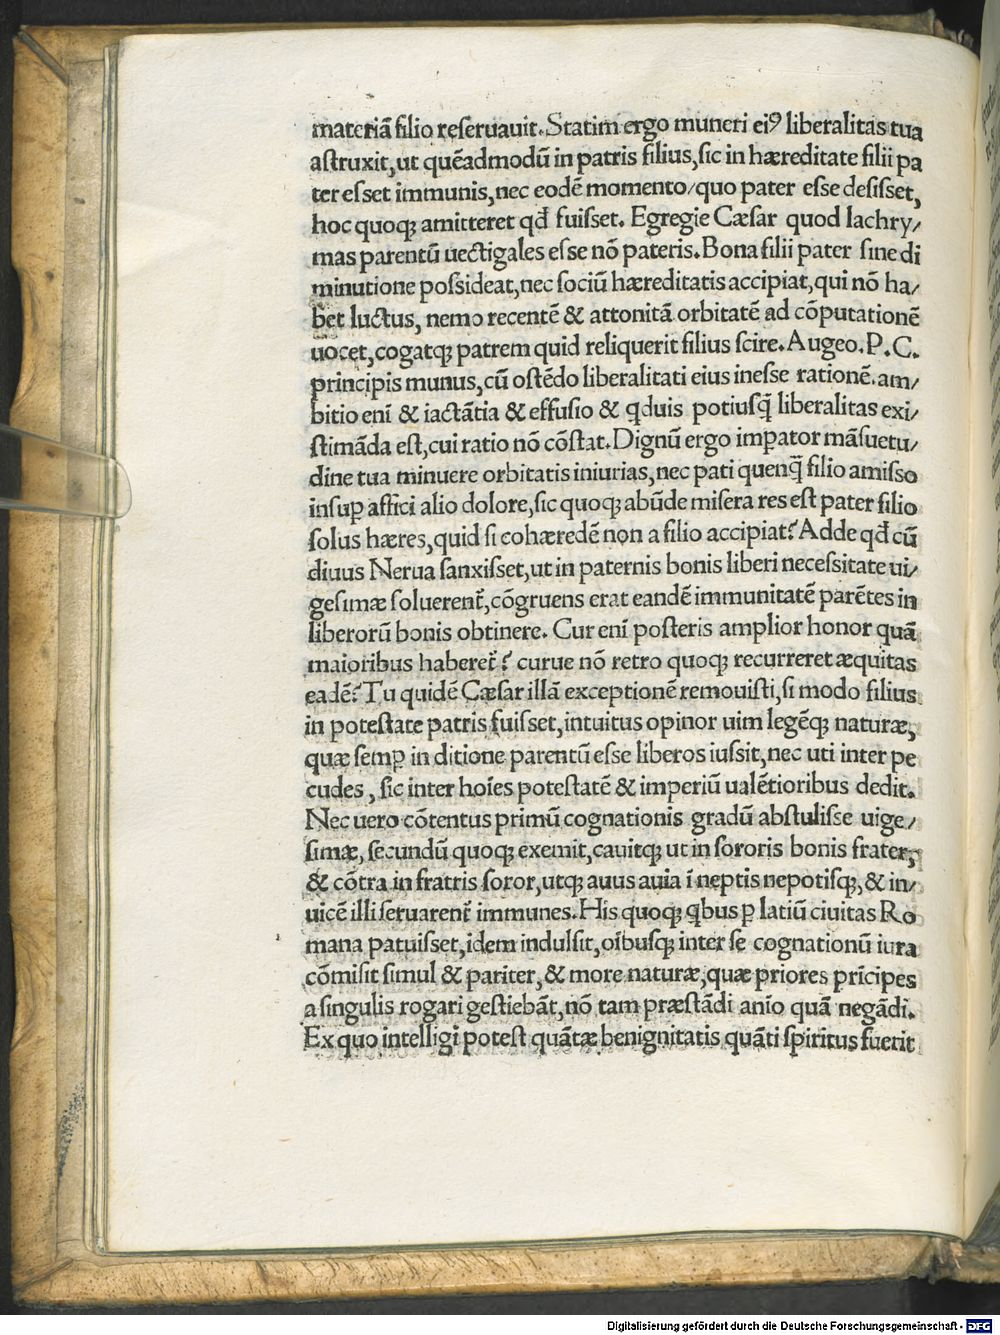 materiā filio reſeruauit. Statim ergo muneri eiꝰ liberalitas tua
aſtruxit, ut quēadmodū in patris filius, ſic in hæreditate filii pa
ter eſſet immunis, nec eodē momento/ quo pater eſſe deſiſſet,
hoc quoqꝫ amitteret qđ fuiſſet. Egregie Cæſar quod lachry/
mas parentū uectigales eſſe nō pateris. Bona filii pater ſine di
minutione poſſideat, nec ſociū hæreditatis accipiat, qui nō ha/
bet luctus, nemo recentē & attonitā orbitatē ad cōputationē
uocet, cogatqꝫ patrem quid reliquerit filius ſcire. Augeo. P. C.
principis munus, cū oſtēdo liberalitati eius ineſſe rationē. am/
bitio eni̅ & iactātia & effuſio & qduis potiuſq̄ liberalitas exi/
ſtimāda eſt, cui ratio nō cōſtat. Dignū ergo imꝑator māſuetu/
dine tua minuere orbitatis iniurias, nec pati quenq̄ filio amiſſo
inſuꝑ affici alio dolore, ſic quoqꝫ abūde miſera res eſt pater filio
ſolus hæres, quid ſi cohæredē non a filio accipiat? Adde qđ cū
diuus Nerua ſanxiſſet, ut in paternis bonis liberi neceſſitate ui/
geſimæ ſoluerent̄, cōgruens erat eandē immunitatē parētes in
liberorū bonis obtinere. Cur eni̅ poſteris amplior honor quā
maioribus haberet̄? curue nō retro quoqꝫ recurreret æquitas
eadē? Tu quidē Cæſar illā exceptionē remouiſti, ſi modo filius
in poteſtate patris fuiſſet, intuitus opinor uim legēqꝫ naturæ,
quæ ſemꝑ in ditione parentū eſſe liberos iuſſit, nec uti inter pe
cudes, ſic inter hoi̅es poteſtatē & imperiū ualētioribus dedit.
Nec uero cōtentus primū cognationis gradū abſtuliſſe uige/
ſimæ, ſecundū quoqꝫ exemit, cauitqꝫ ut in ſororis bonis frater,
& cōtra in fratris ſoror, utqꝫ auus auia i̅ neptis nepotiſqꝫ, & in/
uicē illi ſeruarent̄ immunes. His quoqꝫ qbus ꝑ latiū ciuitas Ro
mana patuiſſet, idem indulſit, oi̅buſqꝫ inter ſe cognationū iura
cōmiſit ſimul & pariter, & more naturæ, quæ priores pri̅cipes
a ſingulis rogari geſtiebāt, nō tam præſtādi ani̅o quā negādi.
Ex quo intelligi̅ poteſt quātæ benignitatis quāti ſpiritus fuerit
Digitalisierung gefördert durch die Deutsche Forschungsgemeinschaft - DFG